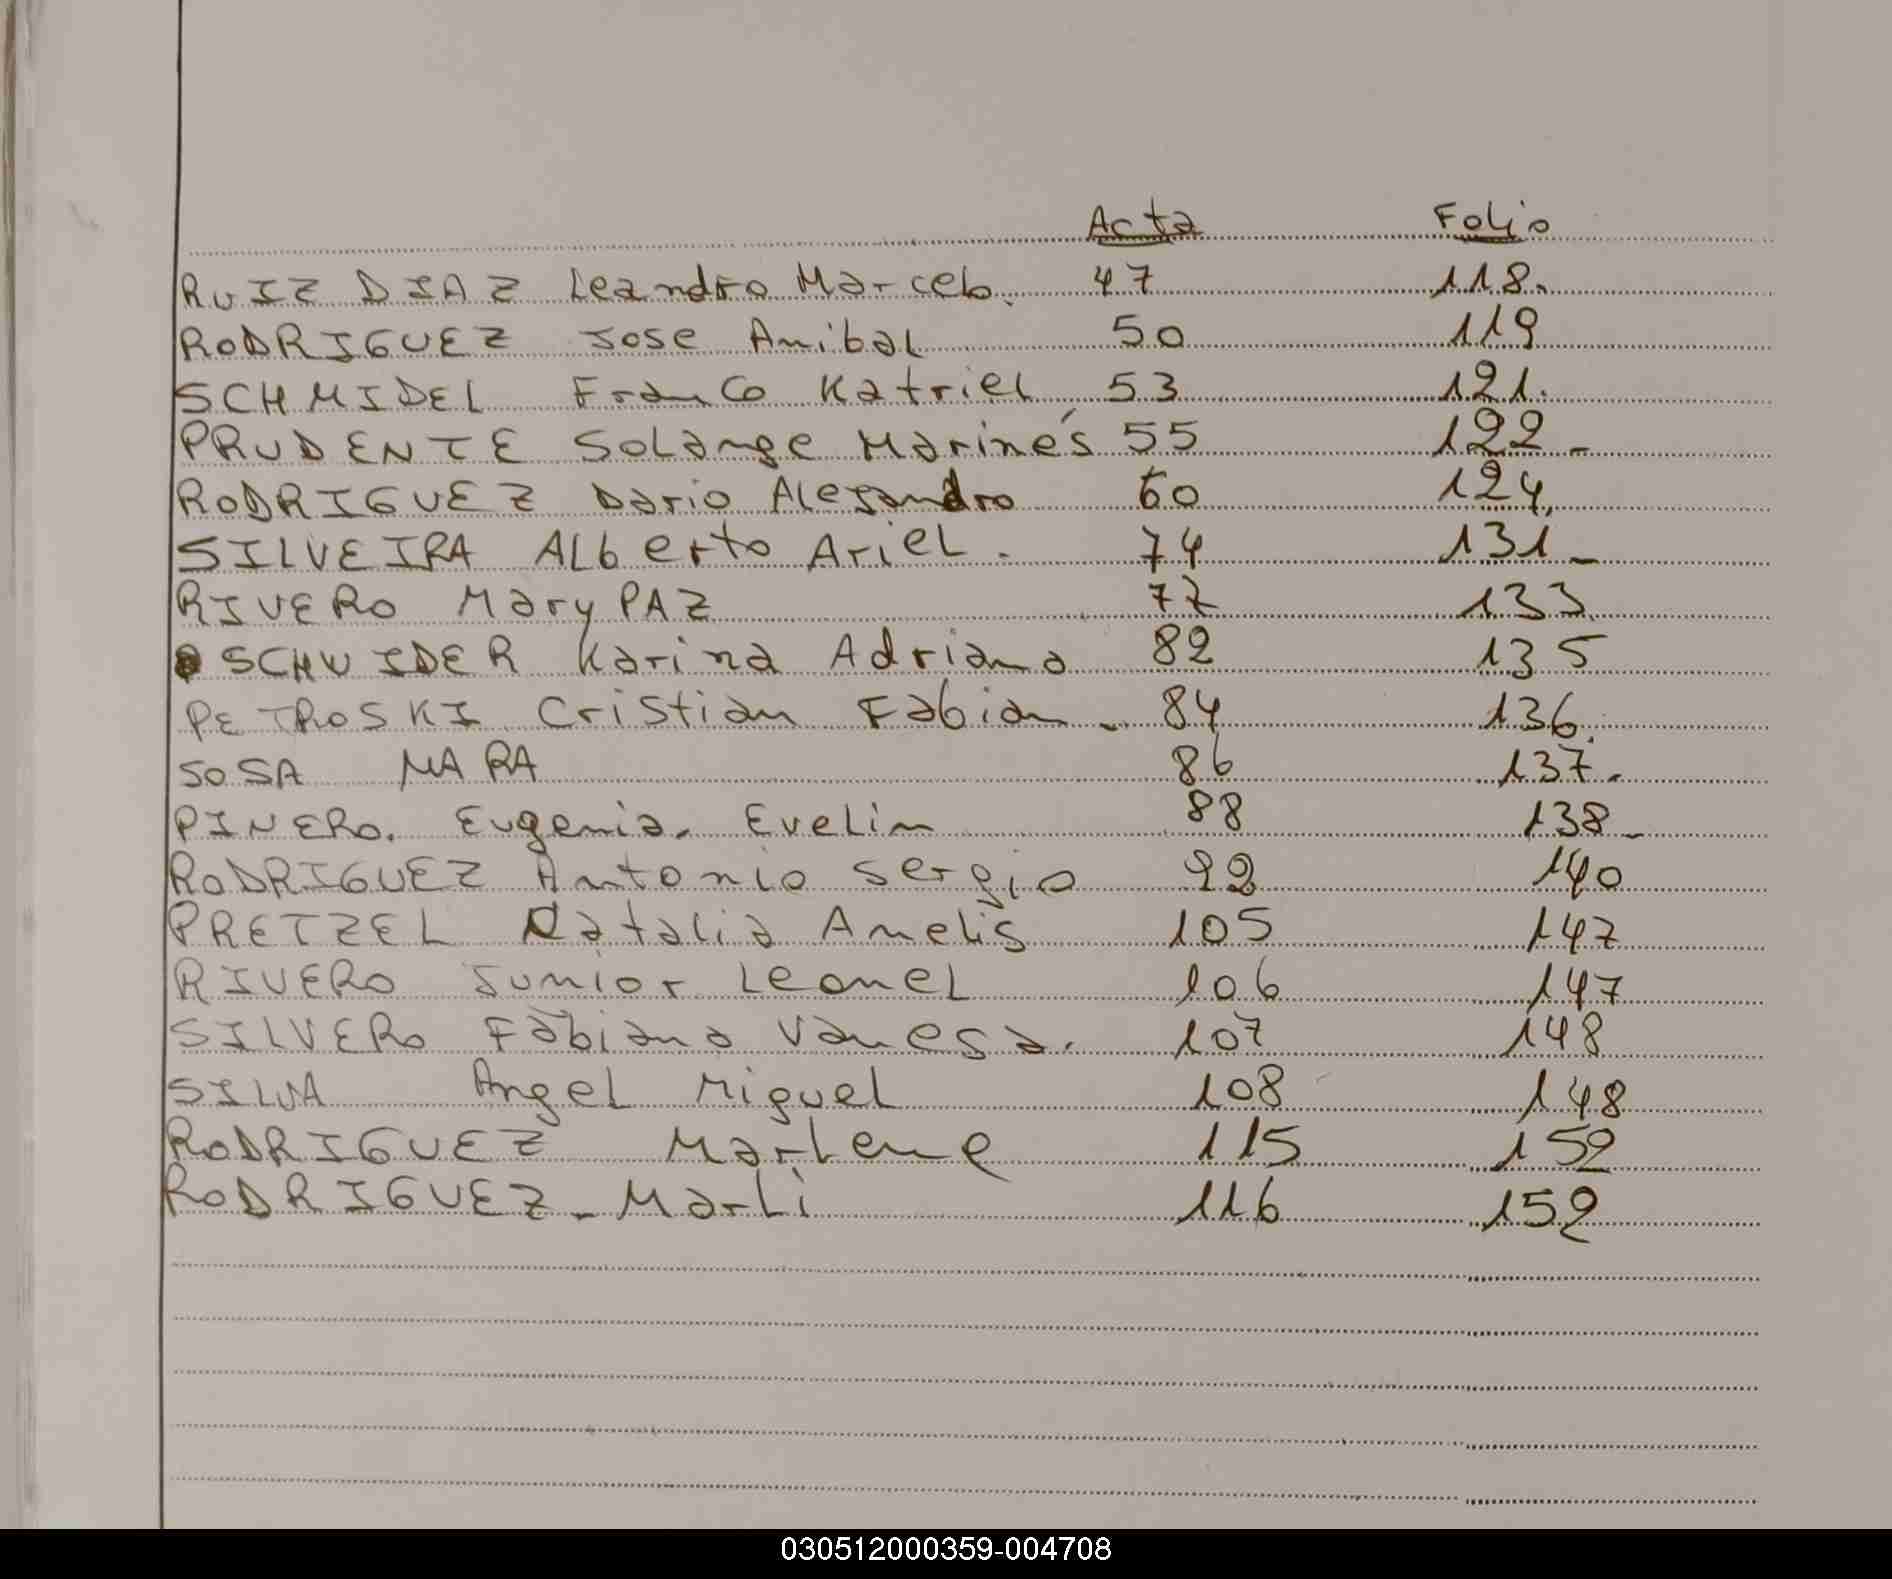 Acta Folio
RUIZ DIAZ Leandro Marcelo. 47 118.
RODRIGUEZ Jose Anibal 50 119
SCHMIDEL Franco Katriel 53 121.
PRUDENTE Solange Marinés 55 122-
RODRIGUEZ Dario Alejandro 60 124.
SILVEIRA Alberto Ariel. 74 131-
RIVERO Mary PAZ 77 133
SCHVIDER Karina Adriana 82 135
PETROSKI Cristian Fabian - 84 136.
SOSA MARA 86 137.
PINERO. Eugenia. Evelin 88 138-
RODRIGUEZ Antonio Sergio 92 140
PRETZEL Natalia Amelis 105 147
RIVERO Junior Leonel 106 147
SILVERO Fabiana Vanesa. 107 148
SILVA Angel Miguel 108 148
RODRIGUEZ Marlene 115 152
RODRIGUEZ - Marli 116 152
030512000359-004708